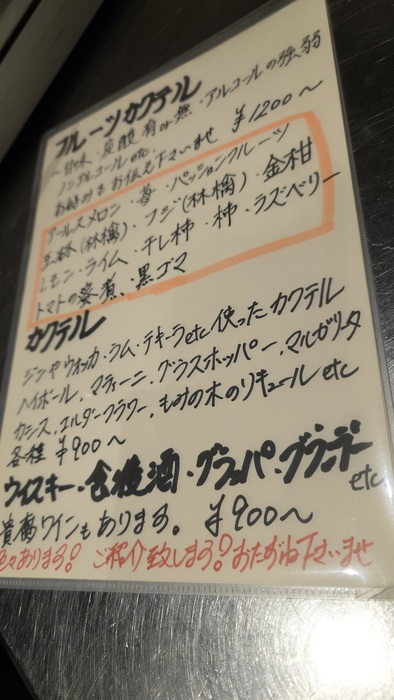 フルーツカクテル
〜甘味・炭酸有or無・アルコールの強弱
ノンアルコールetc.
お好みをお伝え下さいませ ¥1200〜
アールスメロン・苺・パッションフルーツ
王林(林檎)・フジ(林檎)・金柑
レモン・ライム・干し柿・柿・ラズベリー
トマトの蜜煮、黒ゴマ
カクテル
ジンやウォッカ・ラム・テキーラetc使ったカクテル
ハイボール、マティーニ、グラスホッパー、マルガリータ
カシス、エルダーフラワー、もみの木のリキュールetc
各種 ¥900〜
ウィスキー・食後酒・グラッパ・ブランデー
etc
貴腐ワインもあります。 ¥900〜
色々あります! ご紹介致します!おたずね下さいませ